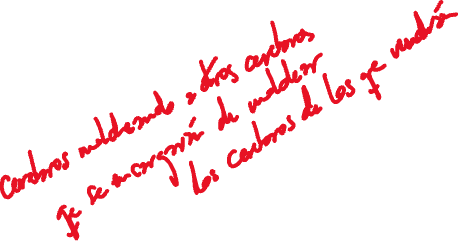 Cerebros moldeando a otros cerebros
qe se encargarán de moldear
los cerebros de los qe vendrán